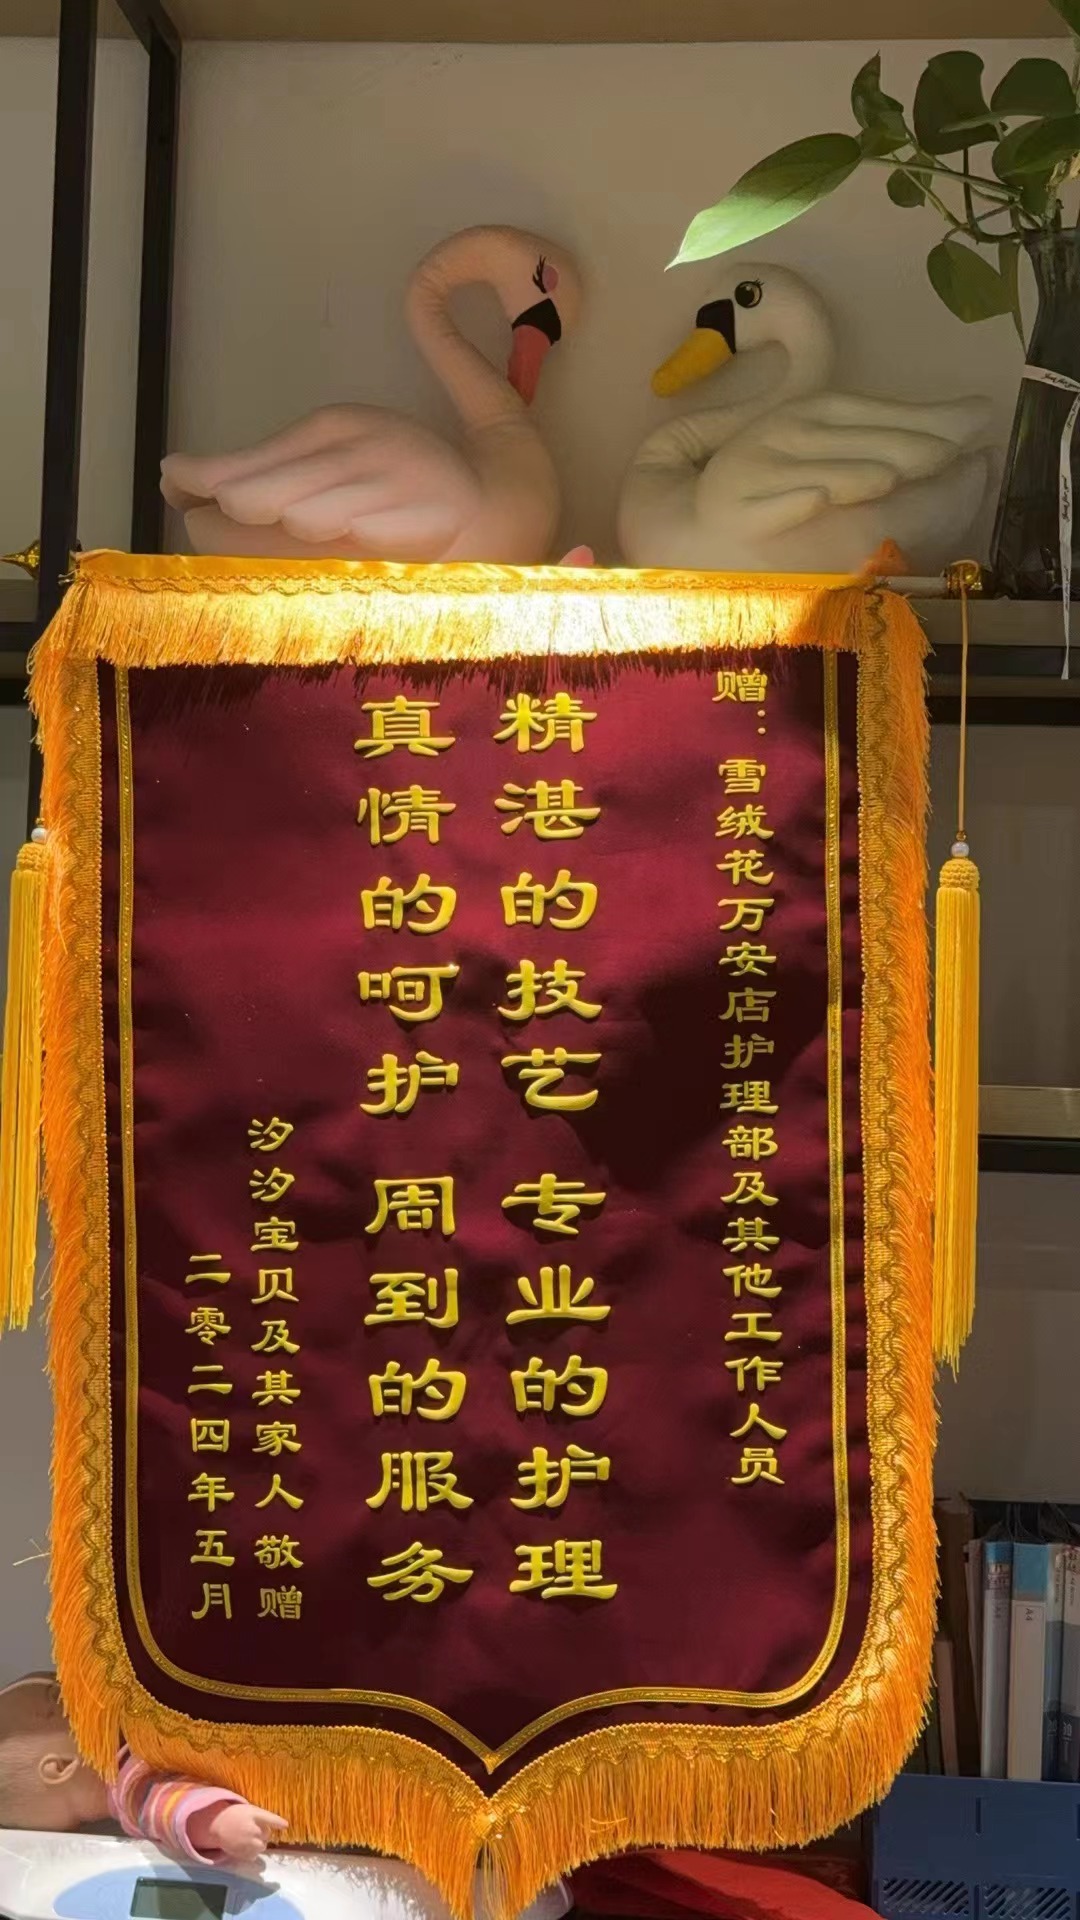 赠：雪绒花万安店护理部及其他工作人员
精湛的技艺 专业的护理
真情的呵护 周到的服务
汐汐宝贝及其家人敬赠
二零二四年五月
A4